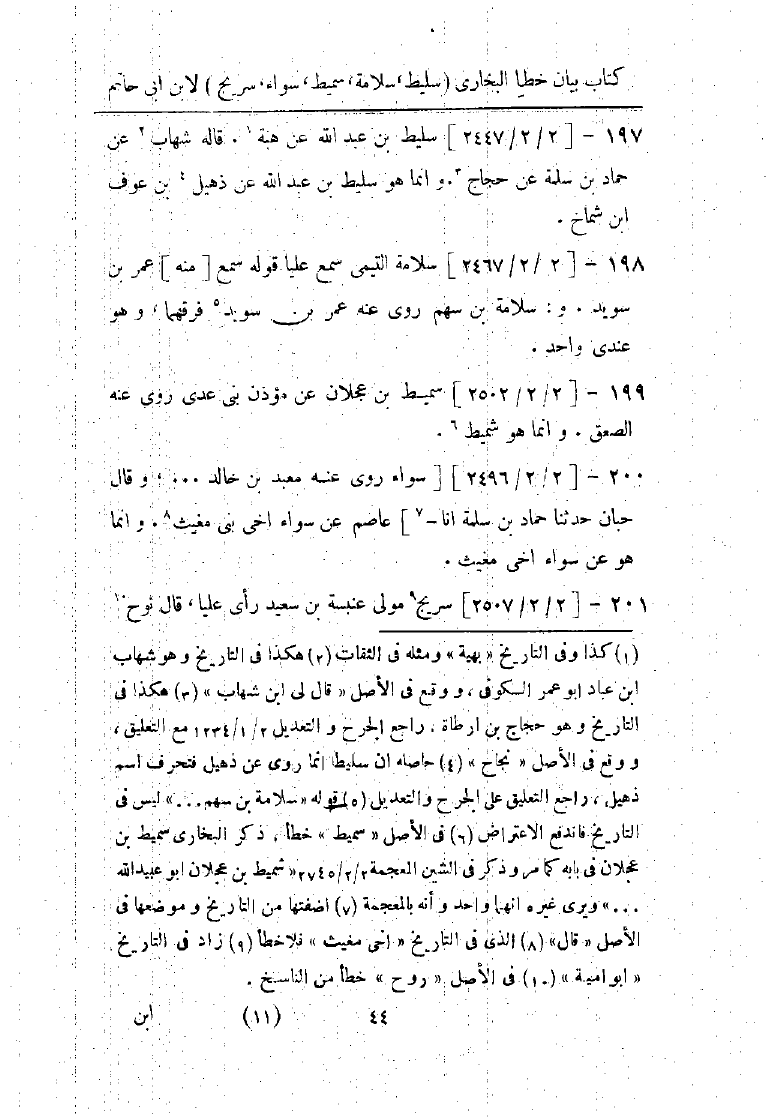 كتاب بيان خطا البخارى (سليط، سلامة، سميط، سواء، سريج) لابن ابى حاتم
١٩٧ - [٢/٢/٢٤٤٧] سليط بن عبد الله عن هبة١ . قاله شهاب٢ عن
حماد بن سلمة عن حجاج٣. و انما هو سليط بن عبد الله عن ذهيل٤ بن عوف
ابن شماخ .
١٩٨ - [٢/٢/٢٤٦٧] سلامة التيمى سمع عليا قوله سمع [منه] عمر بن
سويد . و : سلامة بن سهم روى عنه عمر بن سويد٥ فرقهما، و هو
عندى واحد .
١٩٩ - [٢/٢/٢٥٠٢] سميط بن عجلان عن مؤذن بنى عدى روى عنه
الصعق . و انما هو شميط٦ .
٢٠٠ - [٢/٢/٢٤٩٦] [سواء روى عنه معبد بن خالد ... ؛ و قال
حبان حدثنا حماد بن سلمة انا -٧] عاصم عن سواء اخى بنى مغيث٨ . و انما
هو عن سواء اخى مغيث .
٢٠١ - [٢/٢/٢٥٠٧] سريج٩ مولى عنبسة بن سعيد رأى عليا، قال نوح١٠
(١) كذا وفى التاريخ « بهية » ومثله فى الثقات (٢) هكذا فى التاريخ و هو شهاب
ابن عباد ابو عمر السكوفى، و وقع فى الأصل « قال لى ابن شهاب » (٣) هكذا فى
التاريخ و هو حجاج بن ارطاة . راجع الجرح و التعديل ١٢٣٤/١/٢ مع التعليق،
و وقع فى الأصل « نجاح » (٤) حاصله ان سليطا انما روى عن ذهيل فتحرف اسم
ذهيل، راجع التعليق على الجرح والتعديل (٥) قوله « سلامة بن سهم...» ليس فى
التاريخ فاندفع الاعتراض (٦) فى الأصل « سميط » خطأ . ذكر البخارى سميط بن
عجلان فى بابه كما مر و ذكر فى الشين المعجمة ٢٧٤٥/٢/٢ « شميط بن عجلان ابو عبيدالله
...» ويرى غيره انهما واحد و أنه بالمعجمة (٧) اضفتها من التاريخ و موضعها فى
الأصل « قال » (٨) الذى فى التاريخ « اخى مغيث » فلا خطأ (٩) زاد فى التاريخ
« ابو امية » (١٠) فى الأصل « روح » خطأ من الناسخ .
٤٤ (١١) ابن